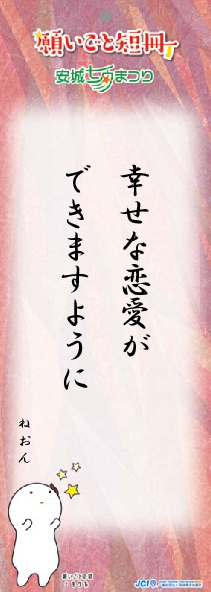 願いごと短冊
安城七夕まつり
幸せな恋愛が
できますように
ねおん
願いごと短冊
JCI